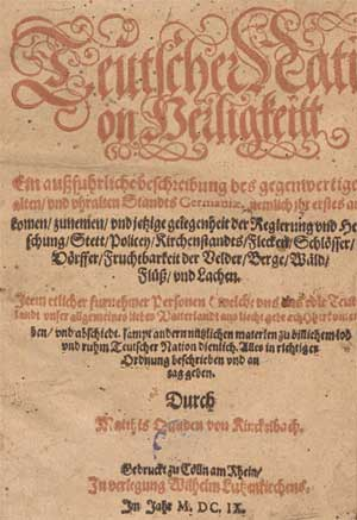 Teutscher Nati
on Herligkeitt
Ein außfuhrliche beschreibung des gegenwertige
alten/ und uhralten Standts Germaniæ, nemlich ihr erstes au
komen/ zunemen/ und jetzige gelegenheit der Regierung und He
schung/ Stett/ Policey/ Kirchenstandts/ Flecken/ Schlösser/
Dörffer/ Fruchtbarkeit der Velder/ Berge/ Wäld/
Flüß/ und Lachen.
Item etlicher furnehmer Personen welche uns das edle Teut
landt unser allgemeines lieben Vatterlandt ans liecht
ben/ und abschiedt. sampt andern nützlichen materien zu billichem lob
und ruhm Teutscher Nation dienlich. Alles in richtiger
Ordnung beschrieben und an
tag geben.
Durch
Matthis Quaden von Kinckelbach.
Gedruckt zu Cölln am Rhein/
In verlegung Wilhelm Lutzenkirchens.
Im Jahr M. DC. IX.